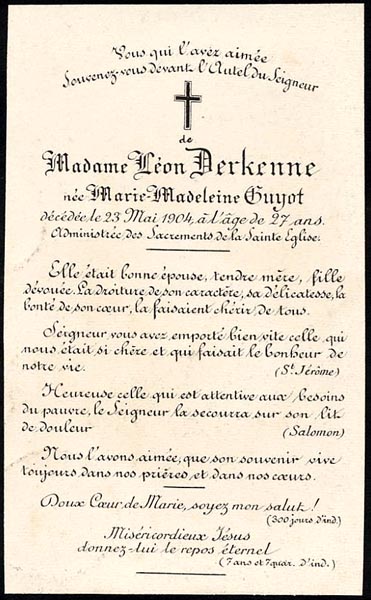 Vous qui l'avez aimée
Souvenez-vous devant l'Autel du Seigneur
de
Madame Léon Derkenne
née Marie-Madeleine Guyot
décédée le 23 Mai 1904, à l'âge de 27 ans.
Administrée des Sacrements de la Sainte Eglise.
Elle était bonne épouse, tendre mère, fille
dévouée. La droiture de son caractère, sa délicatesse, la
bonté de son cœur, la faisaient chérir de tous.
Seigneur vous avez emporté bien vite celle qui
nous était si chère et qui faisait le bonheur de
notre vie. (St. Jérôme)
Heureuse celle qui est attentive aux besoins
du pauvre, le Seigneur la secourra sur son lit
de douleur (Salomon)
Nous l'avons aimée, que son souvenir vive
toujours dans nos prières, et dans nos cœurs.
Doux Cœur de Marie, soyez mon salut!
(300 jours d'ind.)
Miséricordieux Jésus
donnez-lui le repos éternel
(7 ans et 7 quar. d'ind.)